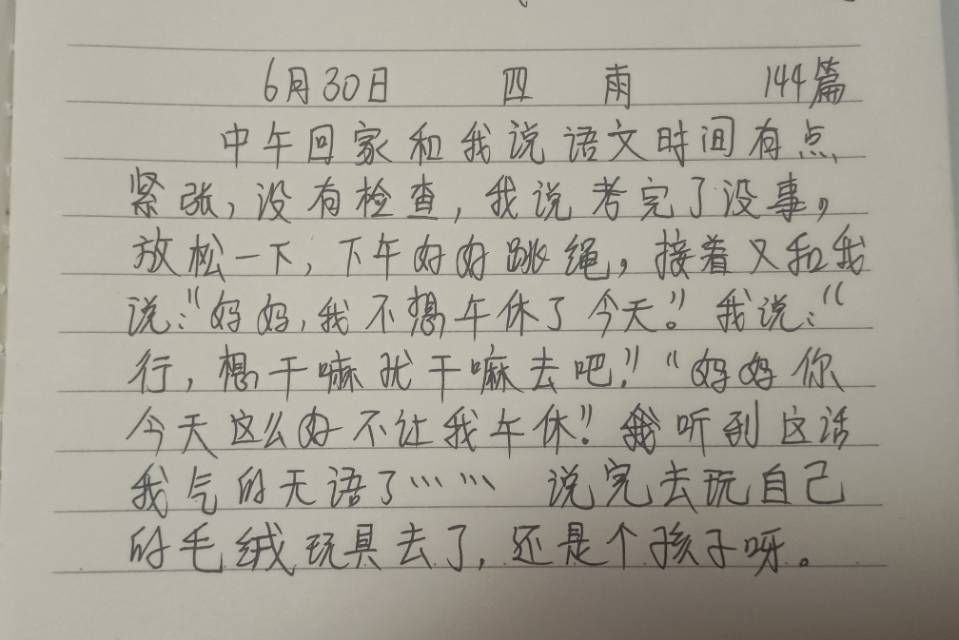 6月30日 四 雨 144篇
中午回家和我说语文时间有点
紧张,没有检查,我说考完了没事,
放松一下,下午好好跳绳,接着又和我
说:“妈妈,我不想午休了今天。”我说:“
行,想干嘛就干嘛去吧!”“妈妈你
今天这么好不让我午休!”我听到这话
我气的无语了…… 说完去玩自己
的毛绒玩具去了,还是个孩子呀。